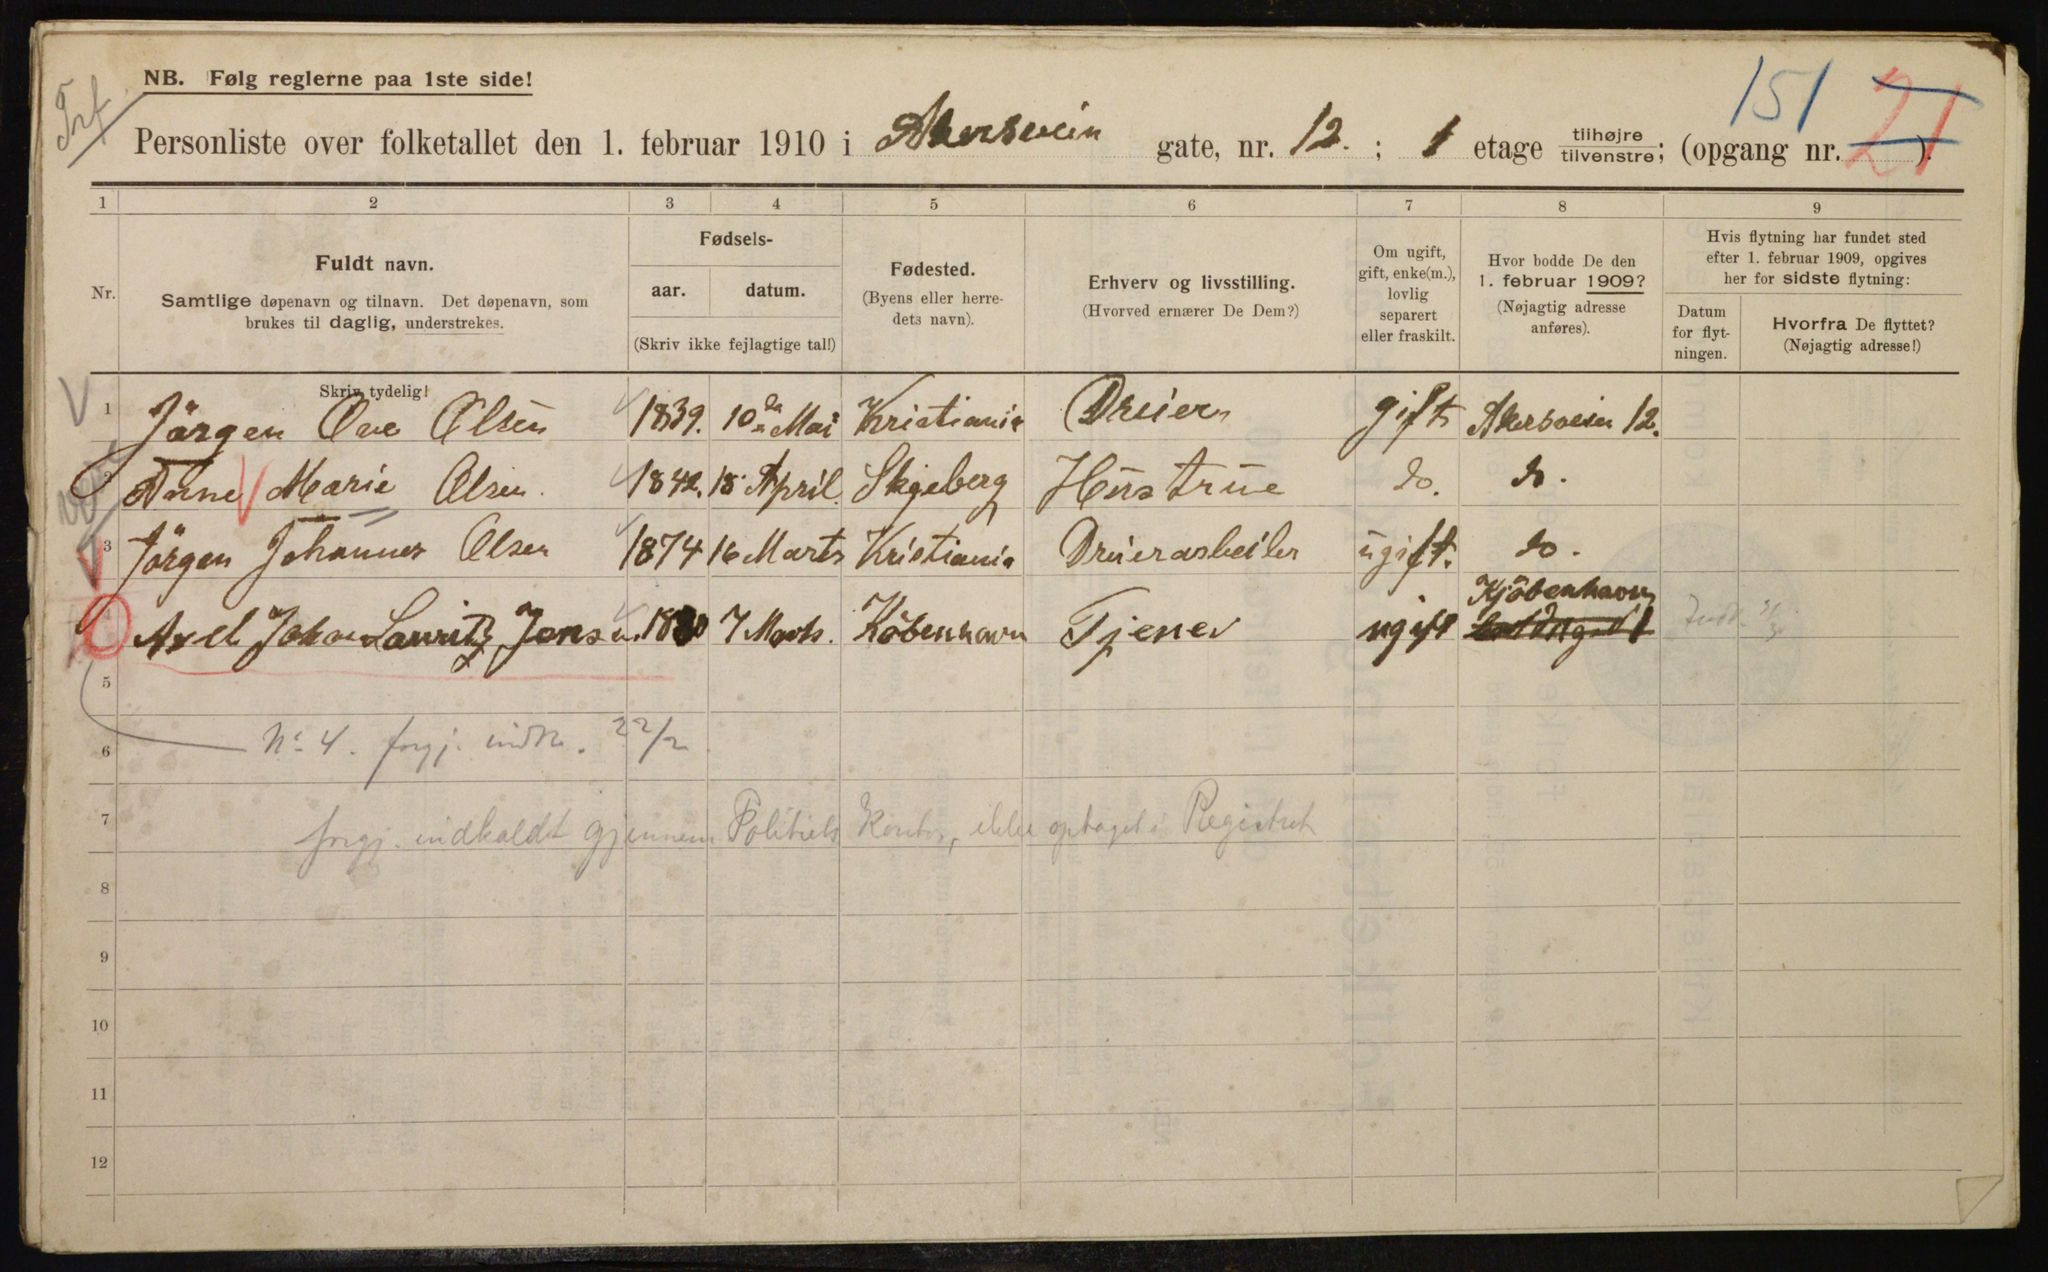 151 21
Trf
NB. Følg reglerne paa 1ste side!
Personliste over folketallet den 1. februar 1910 i Akersveien gate, nr. 12. ; 1 etage tilhøjre/tilvenstre; (opgang nr. ).
1 2 3 4 5 6 7 8 9
Nr.
Fuldt navn.
Samtlige døpenavn og tilnavn. Det døpenavn, som
brukes til daglig, understrekes.
Skriv tydelig!
Fødsels-
aar. datum.
(Skriv ikke fejlagtige tal!)
Fødested.
(Byens eller herre-
dets navn).
Erhverv og livsstilling.
(Hvorved ernærer De Dem?)
Om ugift,
gift, enke(m.),
lovlig
separert
eller fraskilt.
Hvor bodde De den
1. februar 1909?
(Nøjagtig adresse
anføres).
Hvis flytning har fundet sted
efter 1. februar 1909, opgives
her for sidste flytning:
Datum
for flyt-
ningen.
Hvorfra De flyttet?
(Nøjagtig adresse!)
1 Jörgen Ove Olsen 1839. 10de Mai Kristiania Dreier gift Akersveien 12.
2 Anne Marie Olsen. 1842. 18 April. Skjeberg Hüstrüe do. do.
3 Jörgen Johannes Olsen 1874 16 Marts Kristiania Dreierarbeider ügift. do.
Axel Johan Lauritz Jensen 1880 7 Marts. Köbenhavn Tjener ugift Kjöbenhavn
5
6 No 4. forgj. indk. 22/2
7 forgj. indkaldt gjennem Politiets Kontor, ikke optaget i Registret
8
9
10
11
12